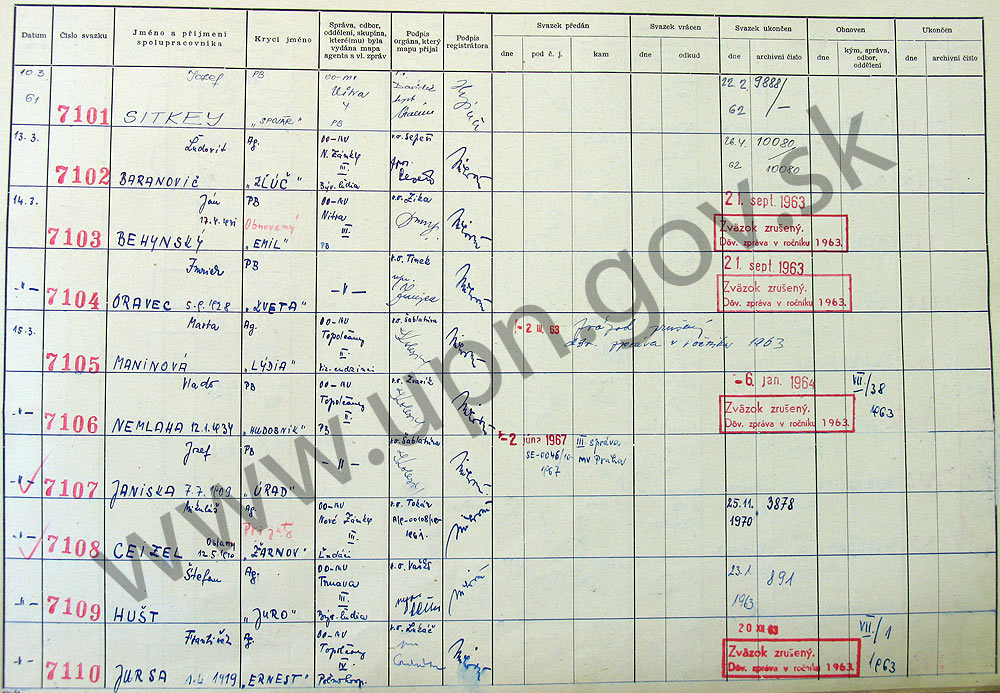 Datum
Číslo svazku
Jméno a příjmení
spolupracovníka
Krycí jméno
Správa, odbor,
oddělení, skupina,
které(mu) byla
vydána mapa
agenta a vl. zpráv
Podpis
orgána, který
mapu přijal
Podpis
registrátora
Svazek předán
dne
pod č. j.
kam
Svazek vrácen
dne
odkud
Svazek ukončen
dne
archivní číslo
Obnoven
dne
kým, správa,
odbor,
oddělení
Ukončen
dne
archivní číslo
10.3
61
7101
Jozef
SITKEY
PB
"SPOJÁR"
OO-MV
Nitra
PB
22. 2.
62
9888/
13. 3.
7102
Ľudovít
BARANOVIČ
Ag.
"ZĽÚČ"
OO-MV
N. Zámky
III.
Býv. ľudia
r.o. Sepeši
26.4.
62
10080
10080
14. 3.
7103
Ján
17.4.1941
BEHYNSKÝ
PB
Obnovený
"EMIL"
OO-MV
Nitra
III.
PB
r.o. Zika
21. sept. 1963
Zväzok zrušený.
Dôv. zpráva v ročníku 1963.
-"-
7104
ORAVEC 5.9.1928
PB
"KVETA"
-"-
r.o. Timek
21. sept 1963
Zväzok zrušený.
Dôv. zpráva v ročníku 1963.
15. 3.
7105
Marta
MANINOVÁ
Ag.
"LÝDIA"
OO-MV
Topoľčany
II.
r.o. Šablatúra
- 2 III. 63
zväzok zrušený
dôv. zpráva v ročníku 1963
-"-
7106
Vlado
NEMLAHA 12.1.1934
PB
"HUDOBNÍK"
OO-MV
Topoľčany
PB
- 6. jan. 1964
Zväzok zrušený.
Dôv. zpráva v ročníku 1963.
VII./38
1963
-"-
7107
Jozef
JANISKA 7.7.1909
PB
"ÚRAD"
-"-
r.o. Šablatúra
- 2 júna 1967
SE-0046/10-
1967
III správa
MV. Praha
-"-
7108
Mikuláš
Oslany
CEIZEL 12.5.1910
Ag.
Prijatý
"ŽARNOV"
OO-MV
Nové Zámky
III.
Ľudáci
r.o. Tokár
25.11.
1970
3878
-"-
7109
Štefan
HUŠT
Ag.
"JURO"
OO-MV
Trnava
III.
Býv. ľudia
23.1.
1963
891
-"-
7110
František
JURSA 1.4 1919
Ag.
"ERNEST"
OO-MV
Topoľčany
IV.
r.o. Lukáč
20 XII 63
Zväzok zrušený.
Dôv. zpráva v ročníku 1963.
VII./1
1963
www.upn.gov.sk